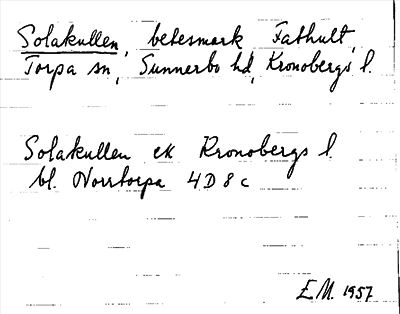 Solakullen, betesmark, Fathult,
Torpa sn, Sunnerbo hd, Kronobergs l.
Solakullen ek Kronobergs l.
bl. Norrtorpa 4D8c
E.M. 1957